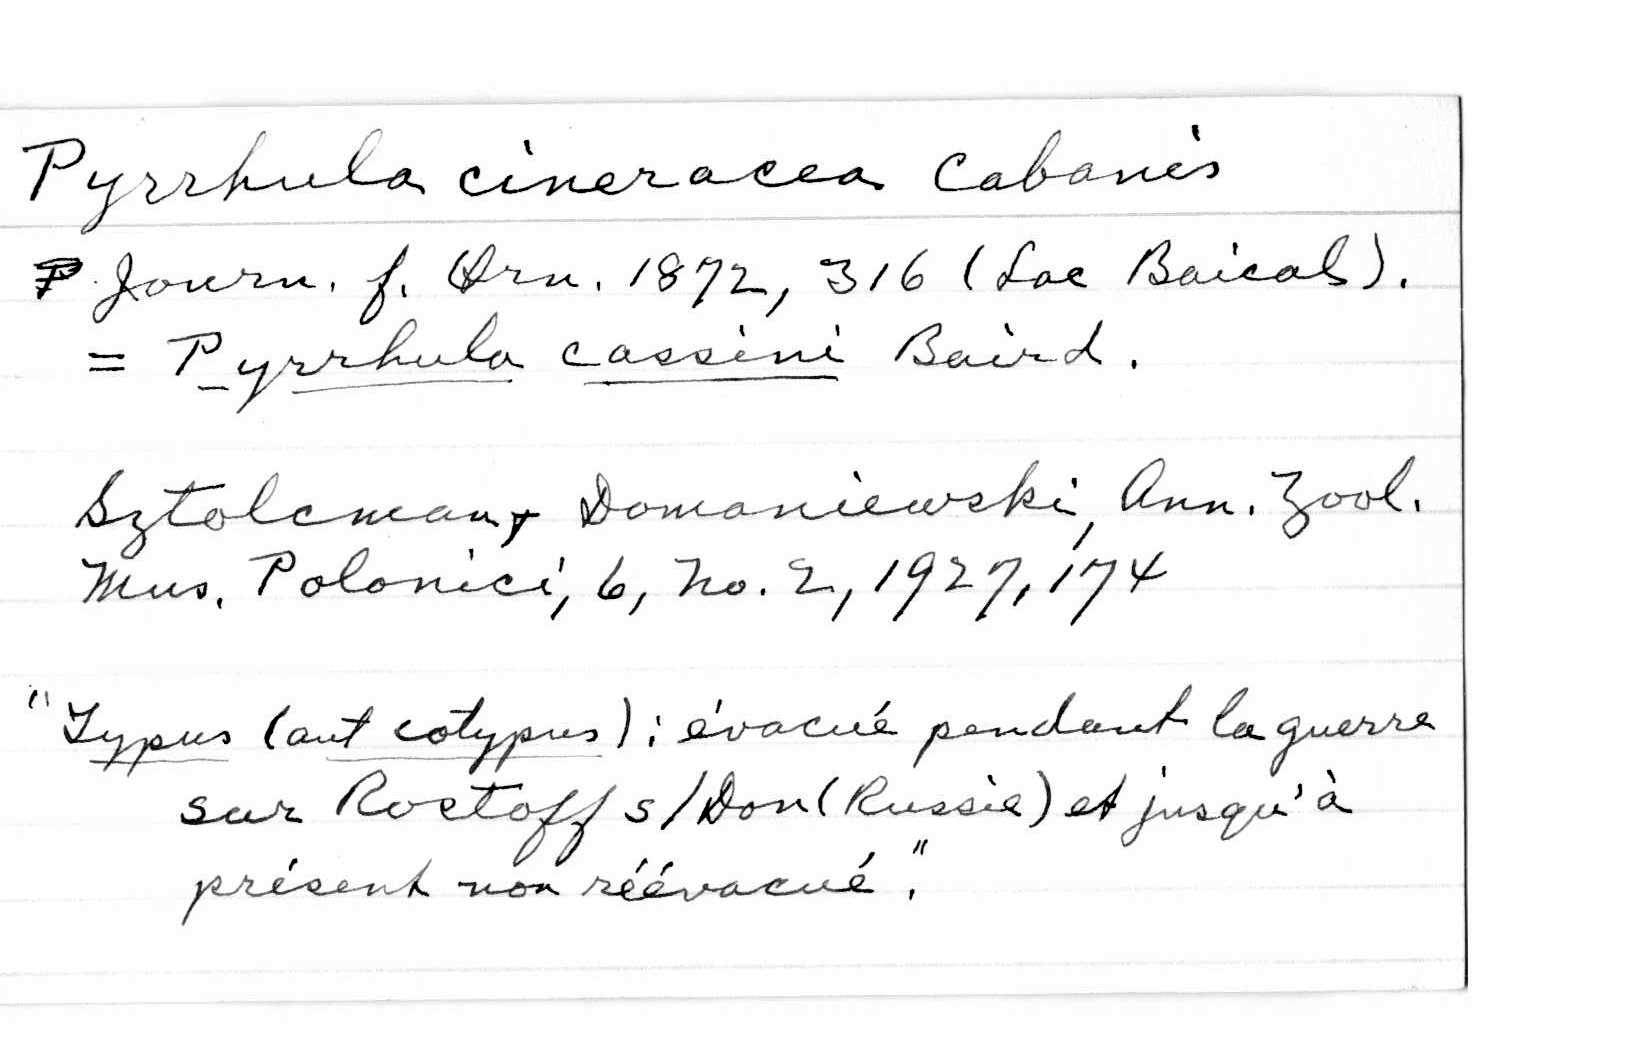 Pyrrhula cineracea Cabanis
Journ. f. Orn. 1872, 316 (Lac Baical).
= Pyrrhula cassini Baird.
Sztolcman & Domaniewski, Ann. Zool.
Mus. Polonici, 6, No. 2, 1927, 174
"Typus (aut cotypus): évacué pendant la guerre
sur Rostoff s/Don (Russie) et jusqu'à
présent non réévacué."